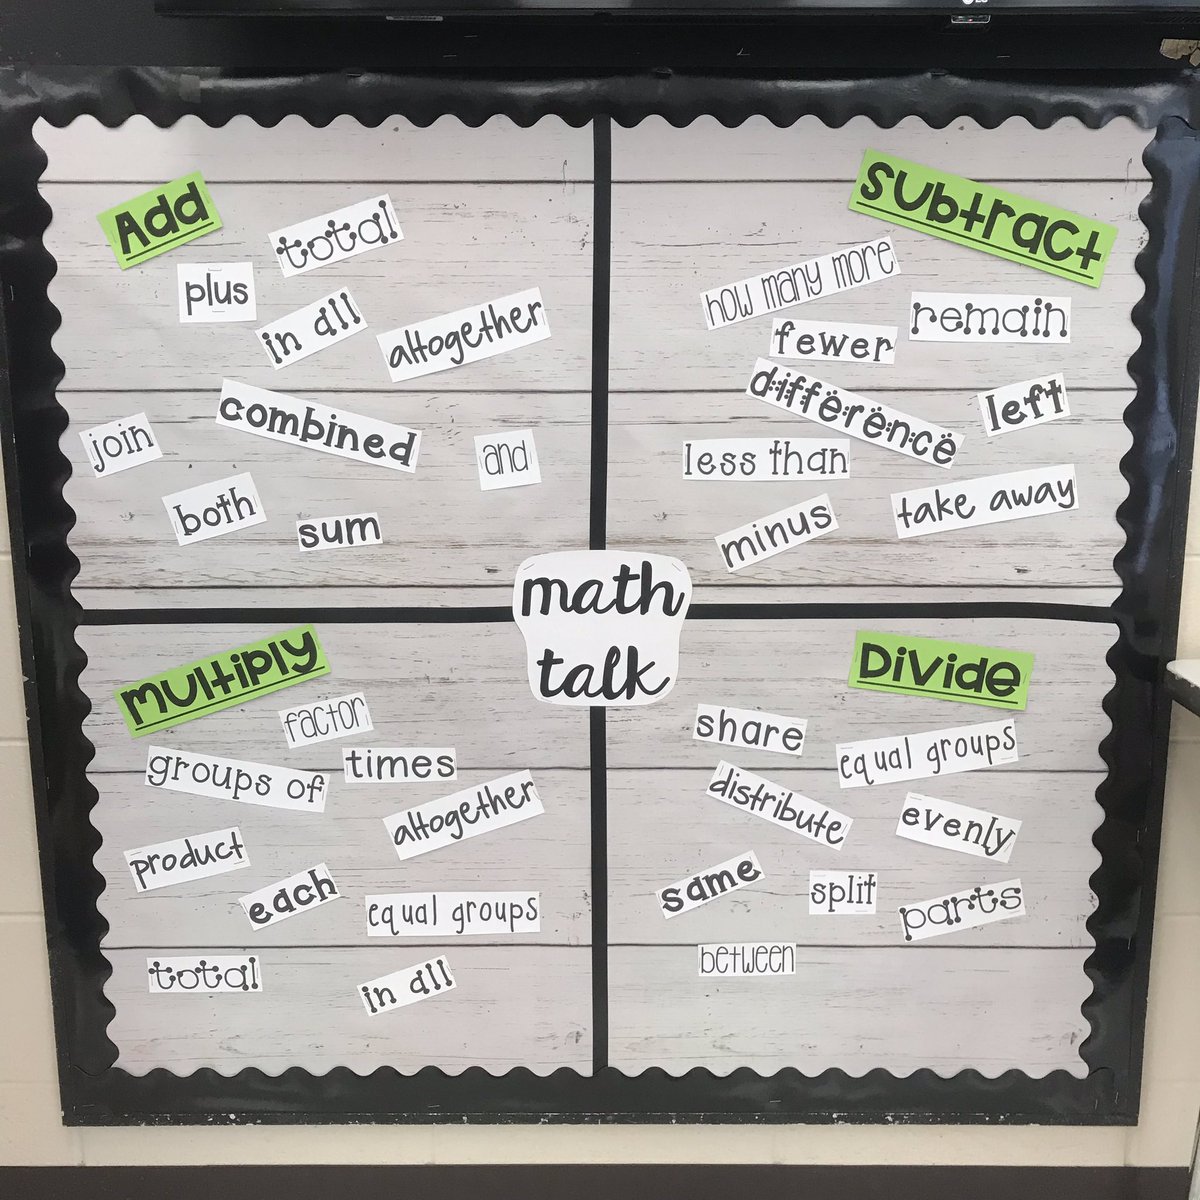 Add
total
plus
in all
altogether
combined
join
and
both
sum
Subtract
how many more
remain
fewer
difference
left
less than
take away
minus
math
talk
Multiply
factor
groups of
times
altogether
product
each
equal groups
total
in all
Divide
share
equal groups
distribute
evenly
same
split
parts
between